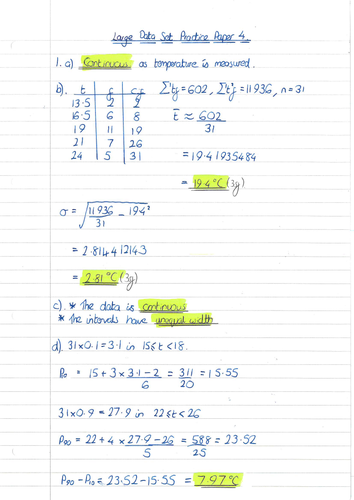 Large Data Set Practice Paper 4.
1. a) Continuous as temperature is measured.
b). t f cf Σtf = 602, Σt²f = 11936, n = 31
13.5 2 2
16.5 6 8
19 11 19
21 7 26
24 5 31
t̄ ≈ 602/31
= 19.41935484
= 19.4°C (3sf)
σ = √(11936/31 - 19.4²)
= 2.814412143
= 2.81°C (3sf)
c). * The data is continuous
* The intervals have unequal width
d) 31×0.1 = 3.1 in 15≤t<18.
P₁₀ = 15 + 3 × (3.1-2)/6 = 311/20 = 15.55
31×0.9 = 27.9 in 22≤t<26
P₉₀ = 22 + 4 × (27.9-26)/5 = 588/25 = 23.52
P₉₀ - P₁₀ = 23.52 - 15.55 = 7.97°C